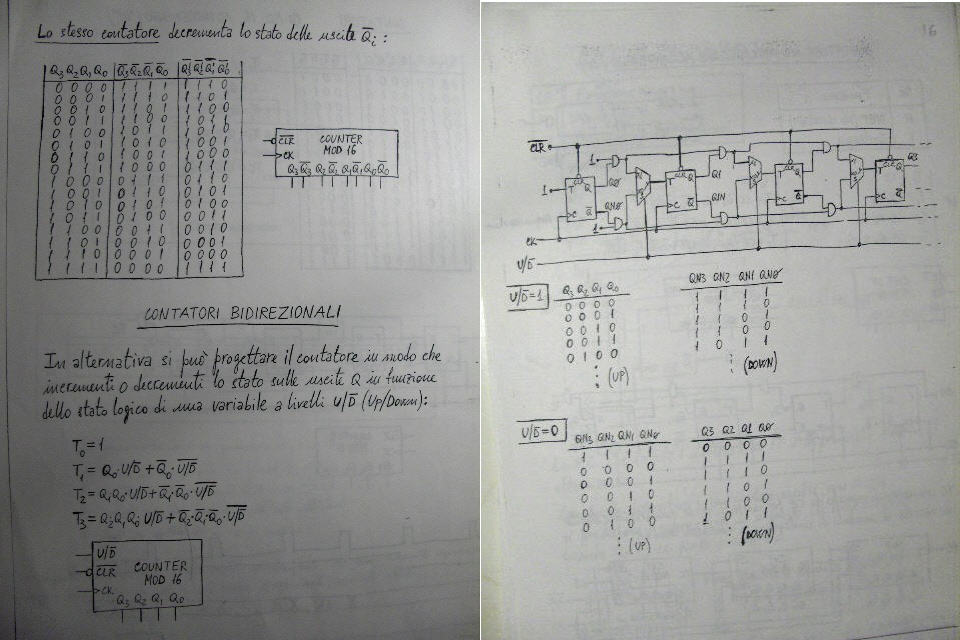 Lo stesso contatore decrementa lo stato delle uscite Q̅i :
Q3 Q2 Q1 Q0 Q̅3 Q̅2 Q̅1 Q̅0 Q̅3' Q̅2' Q̅1' Q̅0'
0 0 0 0 1 1 1 1 1 1 1 0
0 0 0 1 1 1 1 0 1 1 0 1
0 0 1 0 1 1 0 1 1 1 0 0
0 0 1 1 1 1 0 0 1 0 1 1
0 1 0 0 1 0 1 1 1 0 1 0
0 1 0 1 1 0 1 0 1 0 0 1
0 1 1 0 1 0 0 1 1 0 0 0
0 1 1 1 1 0 0 0 0 1 1 1
1 0 0 0 0 1 1 1 0 1 1 0
1 0 0 1 0 1 1 0 0 1 0 1
1 0 1 0 0 1 0 1 0 1 0 0
1 0 1 1 0 1 0 0 0 0 1 1
1 1 0 0 0 0 1 1 0 0 1 0
1 1 0 1 0 0 1 0 0 0 0 1
1 1 1 0 0 0 0 1 0 0 0 0
1 1 1 1 0 0 0 0 1 1 1 1
C̅L̅R̅ COUNTER
CK MOD 16
Q3 Q̅3 Q2 Q̅2 Q1 Q̅1 Q0 Q̅0
CONTATORI BIDIREZIONALI
In alternativa si può progettare il contatore in modo che
incrementi o decrementi lo stato sulle uscite Q in funzione
dello stato logico di una variabile a livelli U/D̅ (Up/Down):
T0 = 1
T1 = Q0·U/D̅ + Q̅0·U̅/̅D̅
T2 = Q1Q0·U/D̅ + Q̅1·Q̅0·U̅/̅D̅
T3 = Q2Q1Q0·U/D̅ + Q̅2·Q̅1·Q̅0·U̅/̅D̅
U/D̅
C̅L̅R̅ COUNTER
CK MOD 16
Q3 Q2 Q1 Q0
16
C̅L̅R̅
1
1 T CLR Q QØ T CLR Q Q1 T CLR Q T CLR Q Q3
C Q̅ QNØ C Q̅ QN C Q̅ C Q̅
1
CK
U/D̅
U/D̅=1
Q3 Q2 Q1 Q0
0 0 0 0
0 0 0 1
0 0 1 0
0 0 1 1
0 1 0 0
(UP)
QN3 QN2 QN1 QNØ
1 1 1 1
1 1 1 0
1 1 0 1
1 1 0 0
1 0 1 1
(DOWN)
U/D̅=0
QN3 QN2 QN1 QNØ
1 1 1 1
0 0 0 0
0 0 0 1
0 0 1 0
0 0 1 1
0 1 0 0
(UP)
Q3 Q2 Q1 QØ
0 0 0 0
1 1 1 1
1 1 1 0
1 1 0 1
1 1 0 0
1 0 1 1
(DOWN)